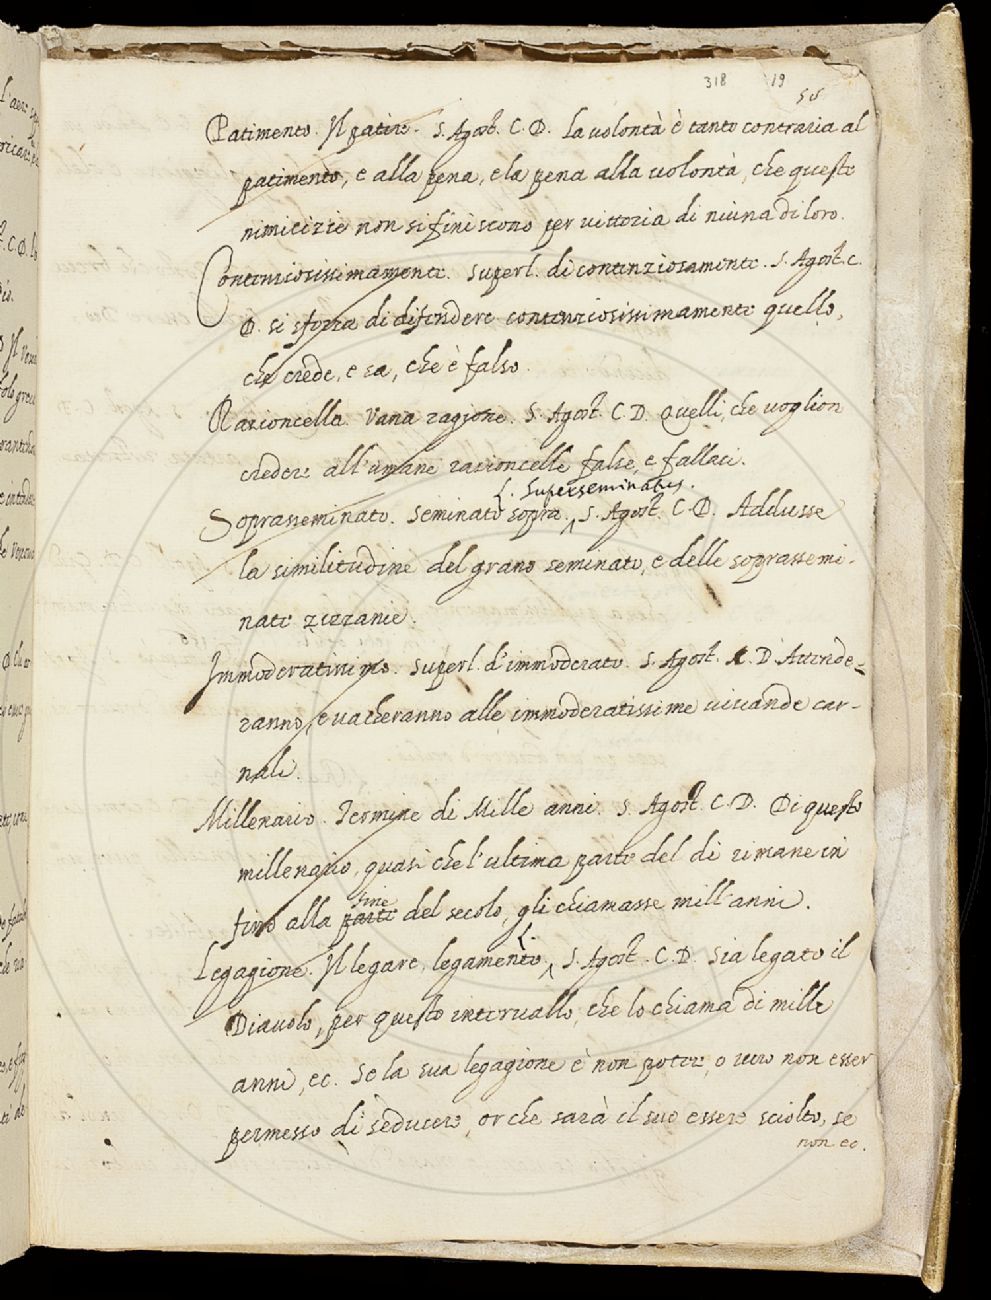 318 19
58
Patimento. Il patire. S. Agost. C. D. La volontà è tanto contraria al
patimento, e alla pena, e la pena alla volontà, che queste
nimicizie non si finiscono per vittoria di niuna di loro.
Contenziosissimamente. Superl. di contenziosamente. S. Agost. C.
D. si sforza di difendere contenziosissimamente quello,
che crede, e sa, che è falso.
Razioncella. Vana ragione. S. Agost. C. D. Quelli, che voglion
credere all'umane razioncelle false, e fallaci.
L. Superseminatus.
Soprasseminato. Seminato sopra, S. Agost. C. D. Addusse
la similitudine del grano seminato, e delle soprassemi-
nate zizzanie.
Immoderatissimo. Superl. d'immoderato. S. Agost. C. D. Attende-
ranno, e vacheranno alle immoderatissime vivande car-
nali.
Millenario. Termine di Mille anni. S. Agost. C. D. Di questo
millenario, quasi che l'ultima parte del dì rimane in
fino alla parte fine del secolo, gli chiamasse mill'anni.
Legagione. Il legare, legamento, L. S. Agost. C. D. Sia legato il
Diavolo, per questo intervallo, che lo chiama di mille
anni, ec. Se la sua legagione è non poter, o vero non esser
permesso di seducere, or che sarà il suo essere sciolto, se
non ec.